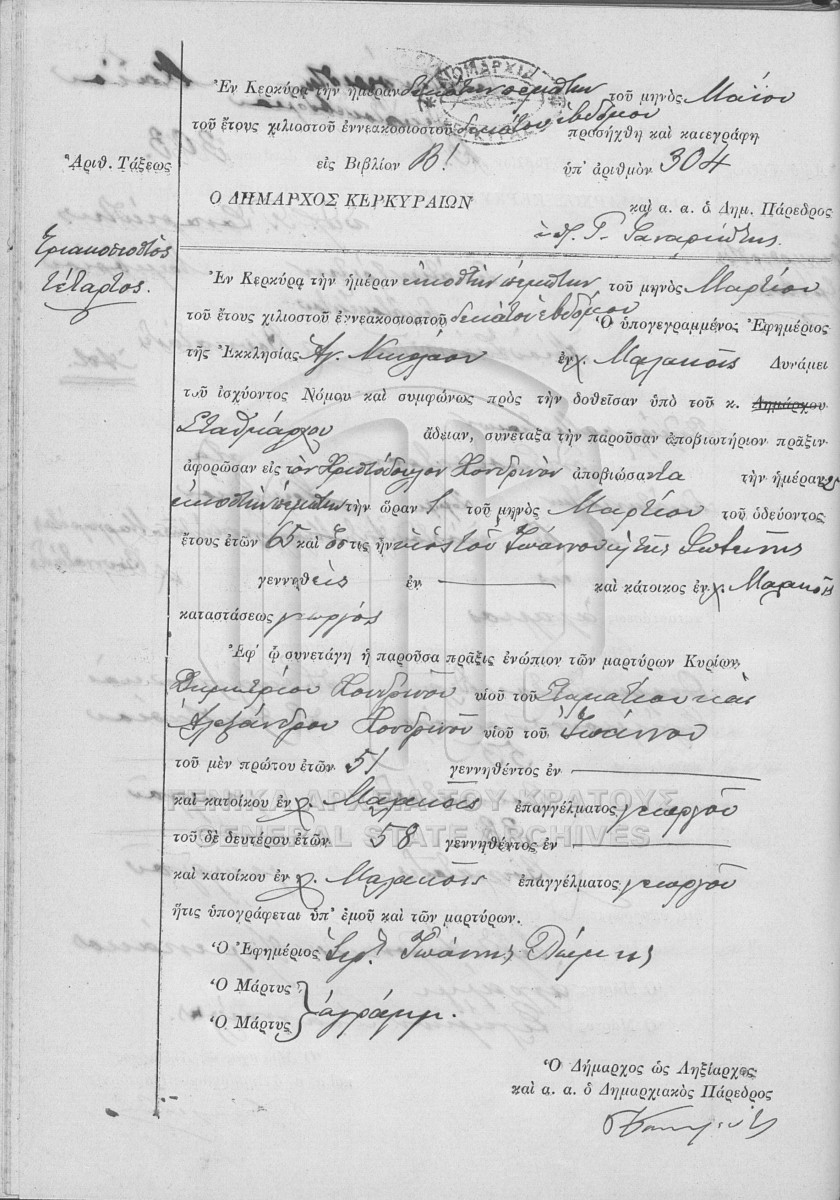 ΝΟΜΑΡΧΙΑ
Ἐν Κερκύρᾳ τὴν ἡμέραν δεκάτην πέμπτην τοῦ μηνὸς Μαΐου
τοῦ ἔτους χιλιοστοῦ ἐννεακοσιοστοῦ δεκάτου ἑβδόμου προσήχθη καὶ κατεγράφη
Ἀριθ. Τάξεως εἰς Βιβλίον Β! ὑπ' ἀριθμὸν 304
Ο ΔΗΜΑΡΧΟΣ ΚΕΡΚΥΡΑΙΩΝ καὶ α. α. ὁ Δημ. Πάρεδρος
Τριακοσιοστὸς
τέταρτος.
Ἐν Κερκύρᾳ τὴν ἡμέραν εἰκοστὴν πέμπτην τοῦ μηνὸς Μαρτίου
τοῦ ἔτους χιλιοστοῦ ἐννεακοσιοστοῦ δεκάτου ἑβδόμου Ὁ ὑπογεγραμμένος Ἐφημέριος
τῆς Ἐκκλησίας Ἁγ. Νικολάου ἐν χ. Μαλακιοῖς Δυνάμει
τοῦ ἰσχύοντος Νόμου καὶ συμφώνως πρὸς τὴν δοθεῖσαν ὑπὸ τοῦ κ. Δημάρχου
Σταθμάρχου ἄδειαν, συνέταξα τὴν παροῦσαν ἀποβιωτήριον πρᾶξιν
ἀφορῶσαν εἰς τὸν Χριστόδουλον Κονδρινὸν ἀποβιώσαντα τὴν ἡμέραν
εἰκοστὴν πέμπτην τὴν ὥραν 1 τοῦ μηνὸς Μαρτίου τοῦ ὁδεύοντος
ἔτους ἐτῶν 65 καὶ ὅστις ἦν υἱὸς τοῦ Ἰωάννου κ τῆς Φωτεινῆς
γεννηθεὶς ἐν καὶ κάτοικος ἐν χ. Μαλακιοῖς
καταστάσεως γεωργὸς
Ἐφ' ᾧ συνετάγη ἡ παροῦσα πρᾶξις ἐνώπιον τῶν μαρτύρων Κυρίων
Δημητρίου Κονδρινοῦ υἱοῦ τοῦ Σταματίου καὶ
Ἀλεξάνδρου Κονδρινοῦ υἱοῦ τοῦ Ἰωάννου
τοῦ μὲν πρώτου ἐτῶν 51 γεννηθέντος ἐν
καὶ κατοίκου ἐν χ. Μαλακιοῖς ἐπαγγέλματος γεωργοῦ
ΓΕΝΙΚΑ ΑΡΧΕΙΑ ΤΟΥ ΚΡΑΤΟΥΣ
GENERAL STATE ARCHIVES
τοῦ δὲ δευτέρου ἐτῶν 58 γεννηθέντος ἐν
καὶ κατοίκου ἐν χ. Μαλακιοῖς ἐπαγγέλματος γεωργοῦ
ἥτις ὑπογράφεται ὑπ' ἐμοῦ καὶ τῶν μαρτύρων.
Ὁ Ἐφημέριος Ἰωάννης
Ὁ Μάρτυς
Ὁ Μάρτυς ἀγράμμ.
Ὁ Δήμαρχος ὡς Ληξίαρχος
καὶ α. α. ὁ Δημαρχιακὸς Πάρεδρος